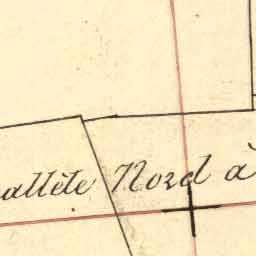 allèle Nord à